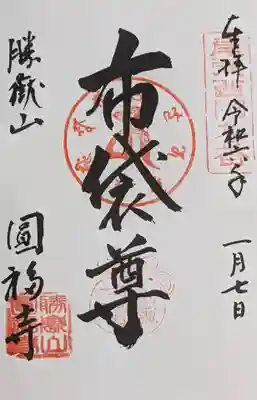 奉拝 令和六年
一月七日
布袋尊
勝嶽山
圓福寺